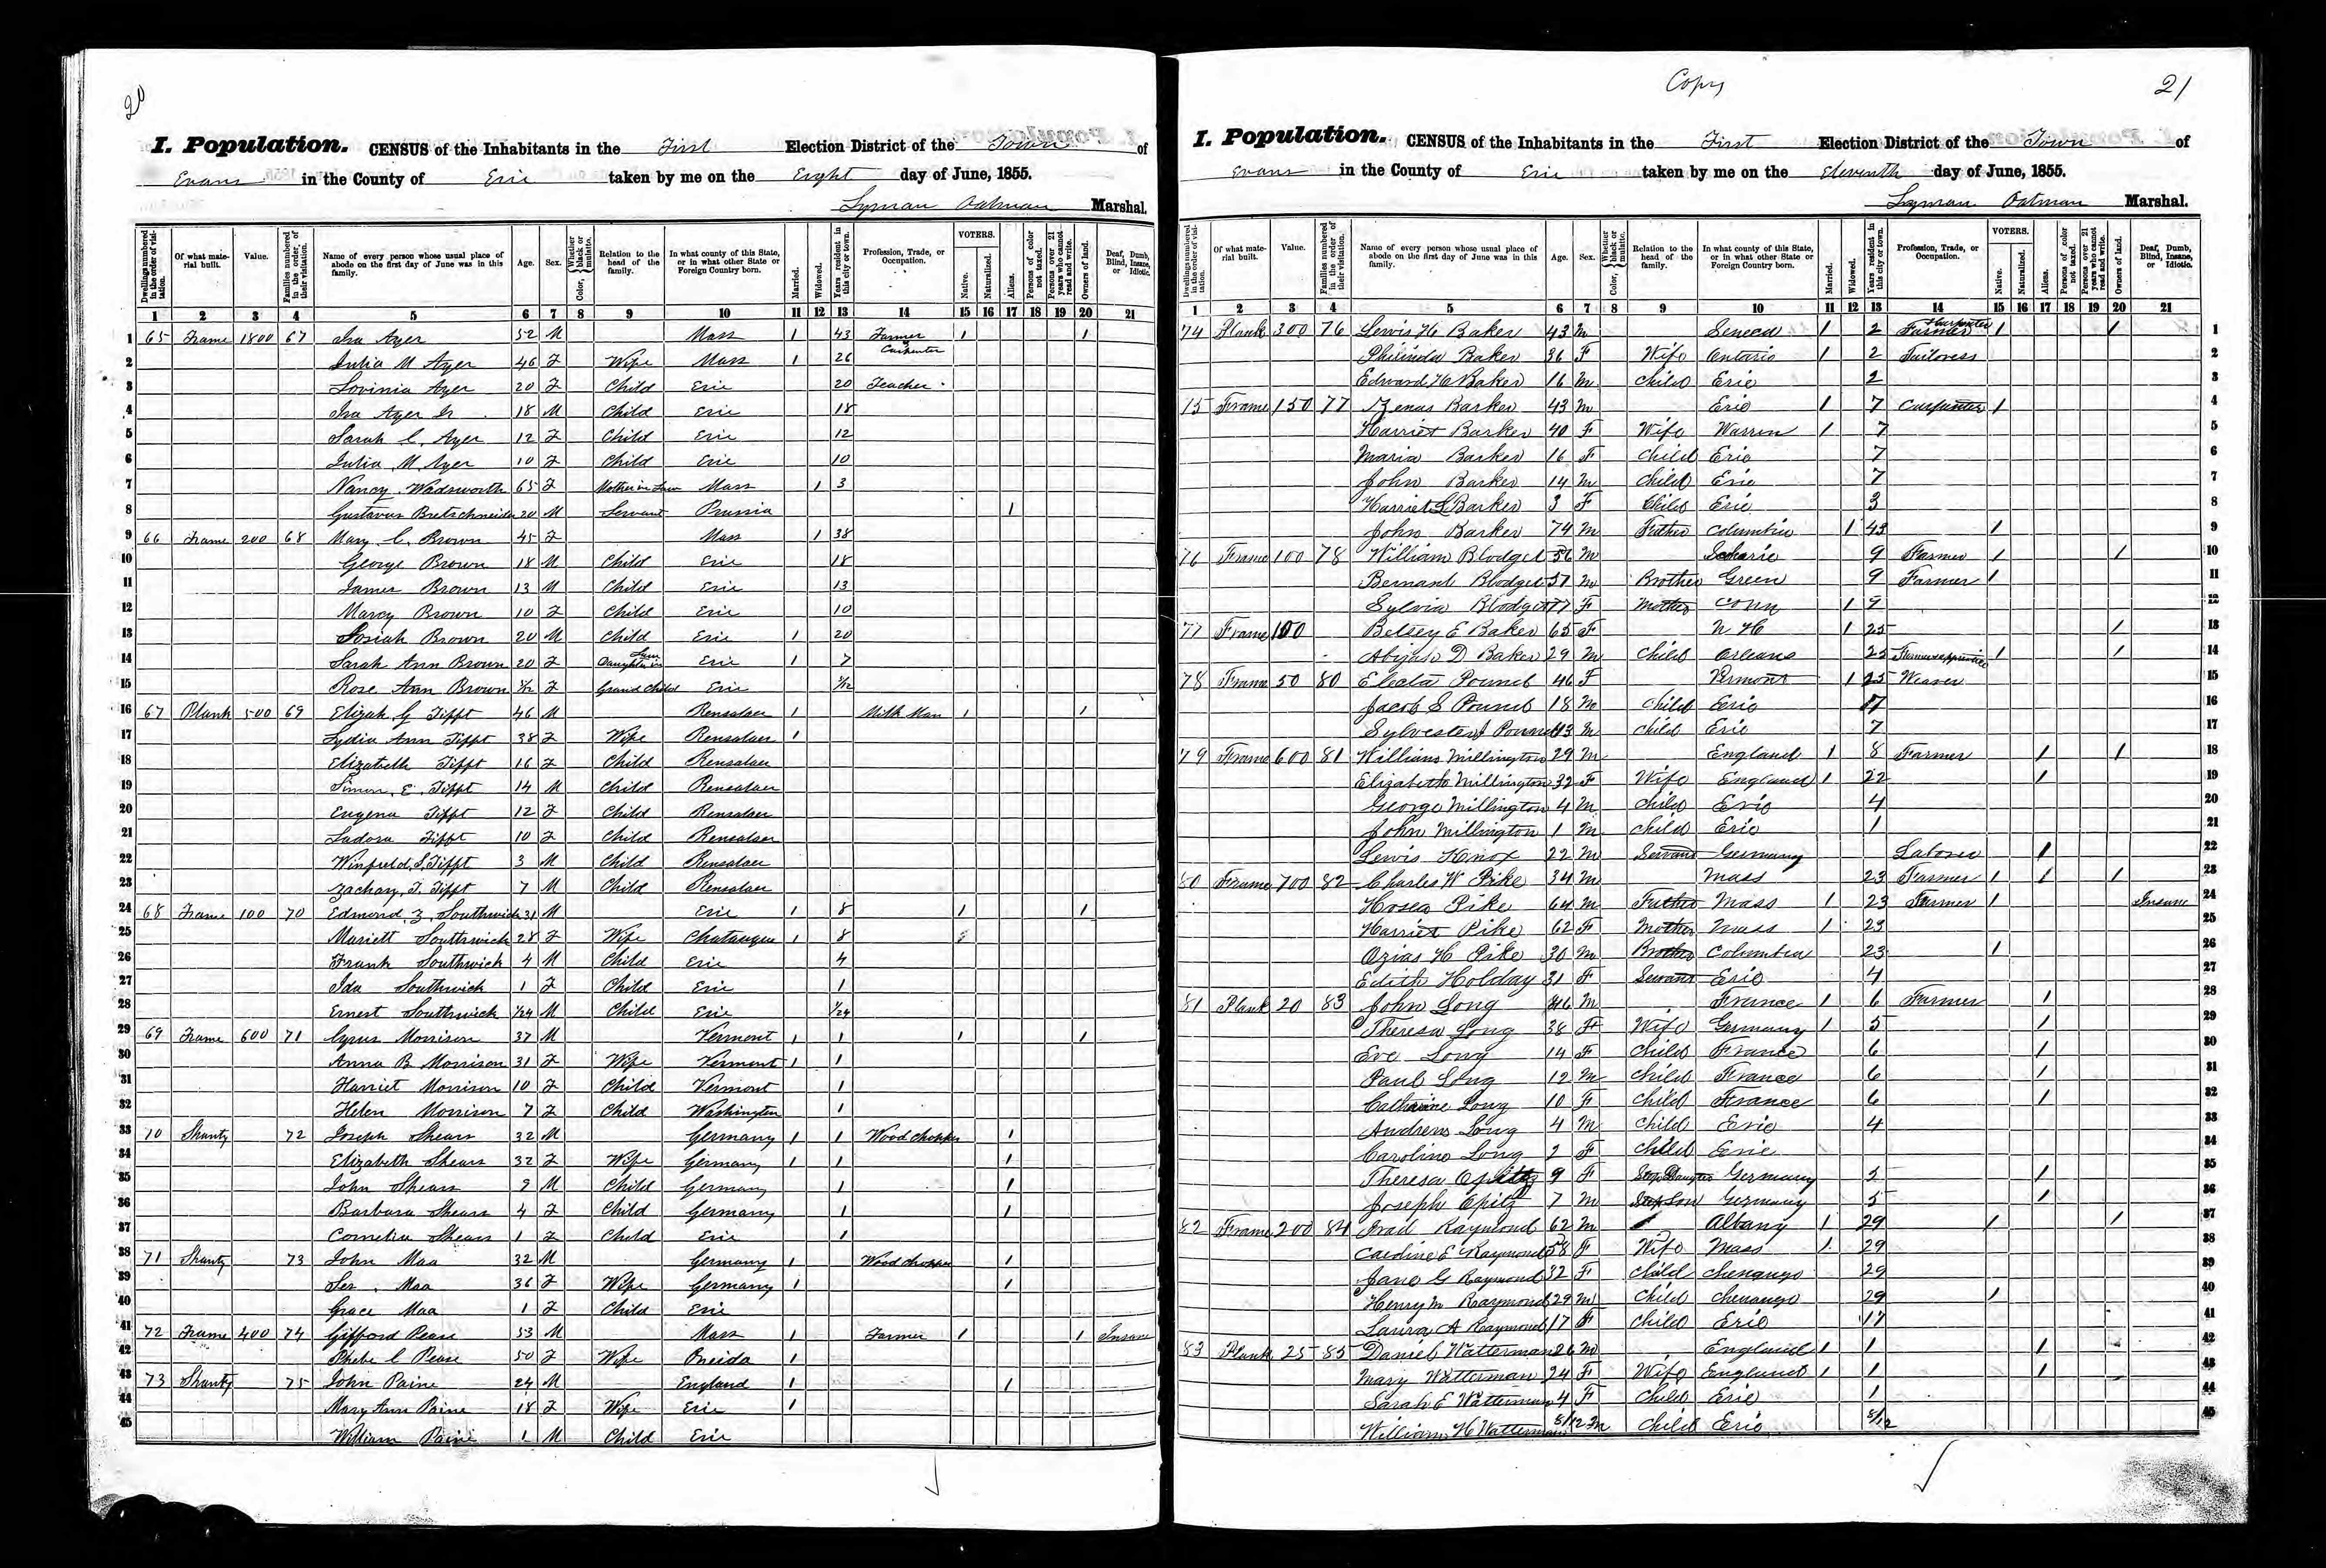 20
I. Population. CENSUS of the Inhabitants in the First Election District of the Town of
Evans in the County of Erie taken by me on the Eight day of June, 1855.
Lyman Oatman Marshal.
Dwellings numbered in the order of visitation. Of what material built. Value. Families numbered in the order, of their visitation. Name of every person whose usual place of abode on the first day of June was in this family. Age. Sex. Color, Whether black or mulatto. Relation to the head of the family. In what county of this State, or in what other State or Foreign Country born. Married. Widowed. Years resident in this city or town. Profession, Trade, or Occupation. VOTERS. Native. Naturalized. Aliens. Persons of color not taxed. Persons over 21 years who cannot read and write. Owners of land. Deaf, Dumb, Blind, Insane, or Idiotic.
1 2 3 4 5 6 7 8 9 10 11 12 13 14 15 16 17 18 19 20 21
1 65 Frame 1800 67 Ira Ayer 52 M Mass 1 43 Farmer & Carpenter 1 1
2 Julia M Ayer 46 F Wife Mass 1 26
3 Lovinia Ayer 20 F Child Erie 20 Teacher
4 Ira Ayer Jr 18 M Child Erie 18
5 Sarah C. Ayer 12 F Child Erie 12
6 Julia M Ayer 10 F Child Erie 10
7 Nancy Wadsworth 65 F Mother in Law Mass 1 3
8 Gustavus Bretschneider 20 M Servant Prussia 1
9 66 Frame 200 68 Mary C. Brown 45 F Mass 1 38
10 George Brown 18 M Child Erie 18
11 James Brown 13 M Child Erie 13
12 Marcy Brown 10 F Child Erie 10
13 Josiah Brown 20 M Child Erie 1 20
14 Sarah Ann Brown 20 F Daughter in Law Erie 1 7
15 Rose Ann Brown 1/12 F Grand Child Erie 1/12
16 67 Plank 500 69 Elizah G Tifft 46 M Rensalaer 1 Milk Man 1 1
17 Lydia Ann Tifft 38 F Wife Rensalaer 1
18 Elizabeth Tifft 16 F Child Rensalaer
19 Simon E. Tifft 14 M Child Rensalaer
20 Eugena Tifft 12 F Child Rensalaer
21 Ladora Tifft 10 F Child Rensalaer
22 Winfield S. Tifft 3 M Child Rensalaer
23 Zachary T. Tifft 7 M Child Rensalaer
24 68 Frame 100 70 Edmond Z. Southwick 31 M Erie 1 8 1 1
25 Mariett Southwick 28 F Wife Chatauque 1 8
26 Frank Southwick 4 M Child Erie 4
27 Ida Southwick 1 F Child Erie 1
28 Ernest Southwick 1/24 M Child Erie 1/24
29 69 Frame 600 71 Cyrus Morrison 37 M Vermont 1 1 1 1
30 Anna B Morrison 31 F Wife Vermont 1 1
31 Harriet Morrison 10 F Child Vermont 1
32 Helen Morrison 7 F Child Washington 1
33 70 Shanty 72 Joseph Shears 32 M Germany 1 1 Wood chopper 1
34 Elizabeth Shears 32 F Wife Germany 1 1 1
35 John Shears 9 M Child Germany 1 1
36 Barbara Shears 4 F Child Germany 1 1
37 Cornelia Shears 1 F Child Erie 1
38 71 Shanty 73 John Maa 32 M Germany 1 Wood chopper 1
39 Maa 36 F Wife Germany 1 1
40 Grace Maa 1 F Child Erie
41 72 Frame 400 74 Gifford Pease 53 M Mass 1 Farmer 1 1 Insane
42 Phebe C Pease 50 F Wife Oneida 1
43 73 Shanty 75 John Paine 24 M England 1 1
44 Mary Ann Paine 18 F Wife Erie 1
45 William Paine 1 M Child Erie
Copy
21
I. Population. CENSUS of the Inhabitants in the First Election District of the Town of
Evans in the County of Erie taken by me on the Eleventh day of June, 1855.
Lyman Oatman Marshal.
Dwellings numbered in the order of visitation. Of what material built. Value. Families numbered in the order of their visitation. Name of every person whose usual place of abode on the first day of June was in this family. Age. Sex. Color, Whether black or mulatto. Relation to the head of the family. In what county of this State, or in what other State or Foreign Country born. Married. Widowed. Years resident in this city or town. Profession, Trade, or Occupation. VOTERS. Native. Naturalized. Aliens. Persons of color not taxed. Persons over 21 years who cannot read and write. Owners of land. Deaf, Dumb, Blind, Insane, or Idiotic.
1 2 3 4 5 6 7 8 9 10 11 12 13 14 15 16 17 18 19 20 21
74 Plank 300 76 Lewis H Baker 43 M Seneca 1 2 Farmer & Carpenter 1 1 1
Philinda Baker 36 F Wife Ontario 1 2 Tailoress 2
Edward H Baker 16 M Child Erie 2 3
75 Frame 150 77 Zenas Barker 43 M Erie 1 7 Carpenter 1 4
Harriet Barker 40 F Wife Warren 1 7 5
Maria Barker 16 F Child Erie 7 6
John Barker 14 M Child Erie 7 7
Harriet L Barker 3 F Child Erie 3 8
John Barker 74 M Father Columbia 1 43 1 9
76 Frame 100 78 William Blodget 56 M Scharie 9 Farmer 1 1 10
Bernard Blodget 51 M Brother Green 9 Farmer 1 11
Sylvia Blodget 77 F Mother Conn 1 9 12
77 Frame 100 Betsey E Baker 65 F N H 1 25 1 13
D Baker 29 M Child Orleans 25 1 1 14
78 Frame 50 80 Electa Pound 46 F Vermont 1 25 Weaver 15
Jacob S Pound 18 M Child Erie 17 16
Sylvester Pound 13 M Child Erie 7 17
79 Frame 600 81 William Millington 29 M England 1 8 Farmer 1 1 18
Elizabeth Millington 32 F Wife England 1 22 1 19
George Millington 4 M Child Erie 4 20
John Millington 1 M Child Erie 1 21
Lewis Knox 22 M Servant Germany Laborer 1 22
80 Frame 700 82 Charles W Pike 34 M Mass 23 Farmer 1 1 1 23
Hosea Pike 64 M Father Mass 1 23 Farmer 1 Insane 24
Harriet Pike 62 F Mother Mass 1 23 25
Ozias H Pike 30 M Brother Columbia 23 1 26
Edith Holday 31 F Servant Erie 4 27
81 Plank 20 83 John Long 46 M France 1 6 Farmer 1 28
Theresa Long 38 F Wife Germany 1 5 1 29
Eve Long 14 F Child France 6 1 30
Paul Long 12 M Child France 6 1 31
Catharine Long 10 F Child France 6 1 32
Andrew Long 4 M Child Erie 4 33
Caroline Long 2 F Child Erie 34
Theresa Opitz 9 F Step Daughter Germany 5 1 35
Joseph Opitz 7 M Step Son Germany 5 1 36
82 Frame 200 84 Irad Raymond 62 M Albany 1 29 1 1 37
Caroline E Raymond 58 F Wife Mass 1 29 38
Jane G Raymond 32 F Child Chenango 29 39
Henry M Raymond 29 M Child Chenango 29 1 40
Laura A Raymond 17 F Child Erie 17 41
83 Plank 25 85 Daniel Watterman 26 M England 1 1 1 42
Mary Watterman 24 F Wife England 1 1 1 43
Sarah E Watterman 4 F Child Erie 1 44
William H Watterman 8/12 M Child Erie 8/12 45